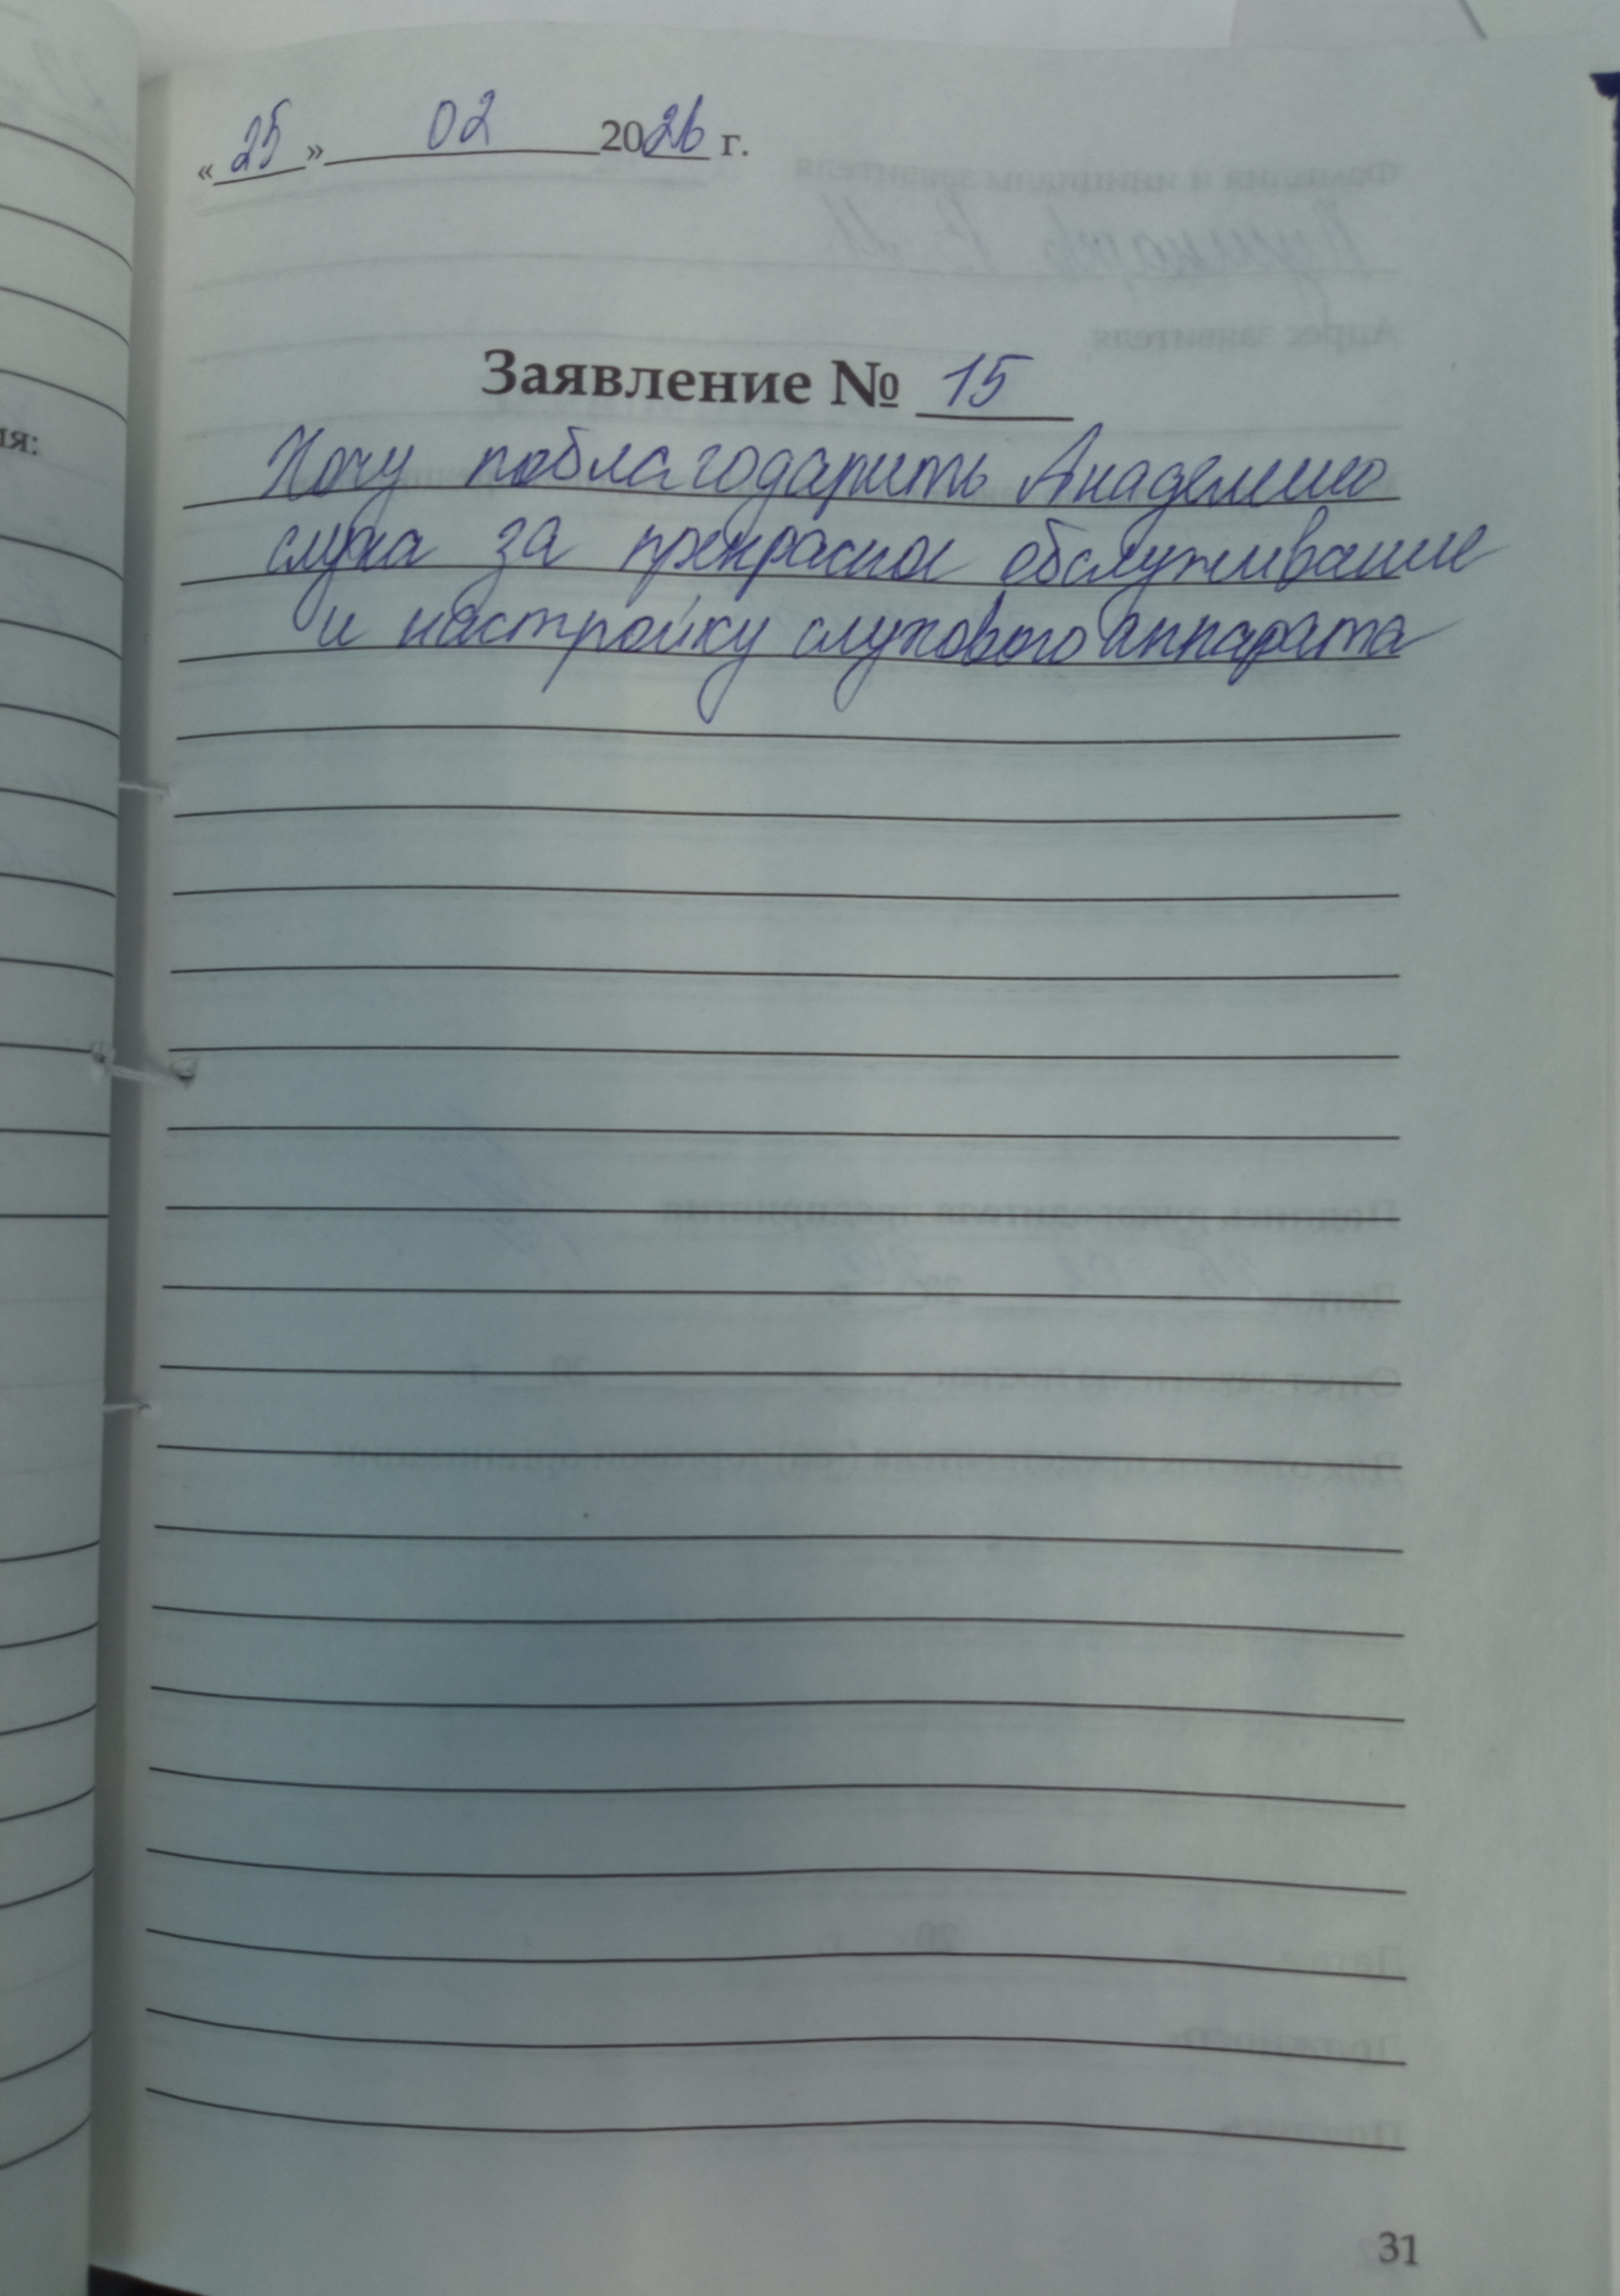 «25» 02 2026 г.
Заявление № 15
Хочу поблагодарить Академию
слуха за прекрасное обслуживание
и настройку слухового аппарата
ия:
31